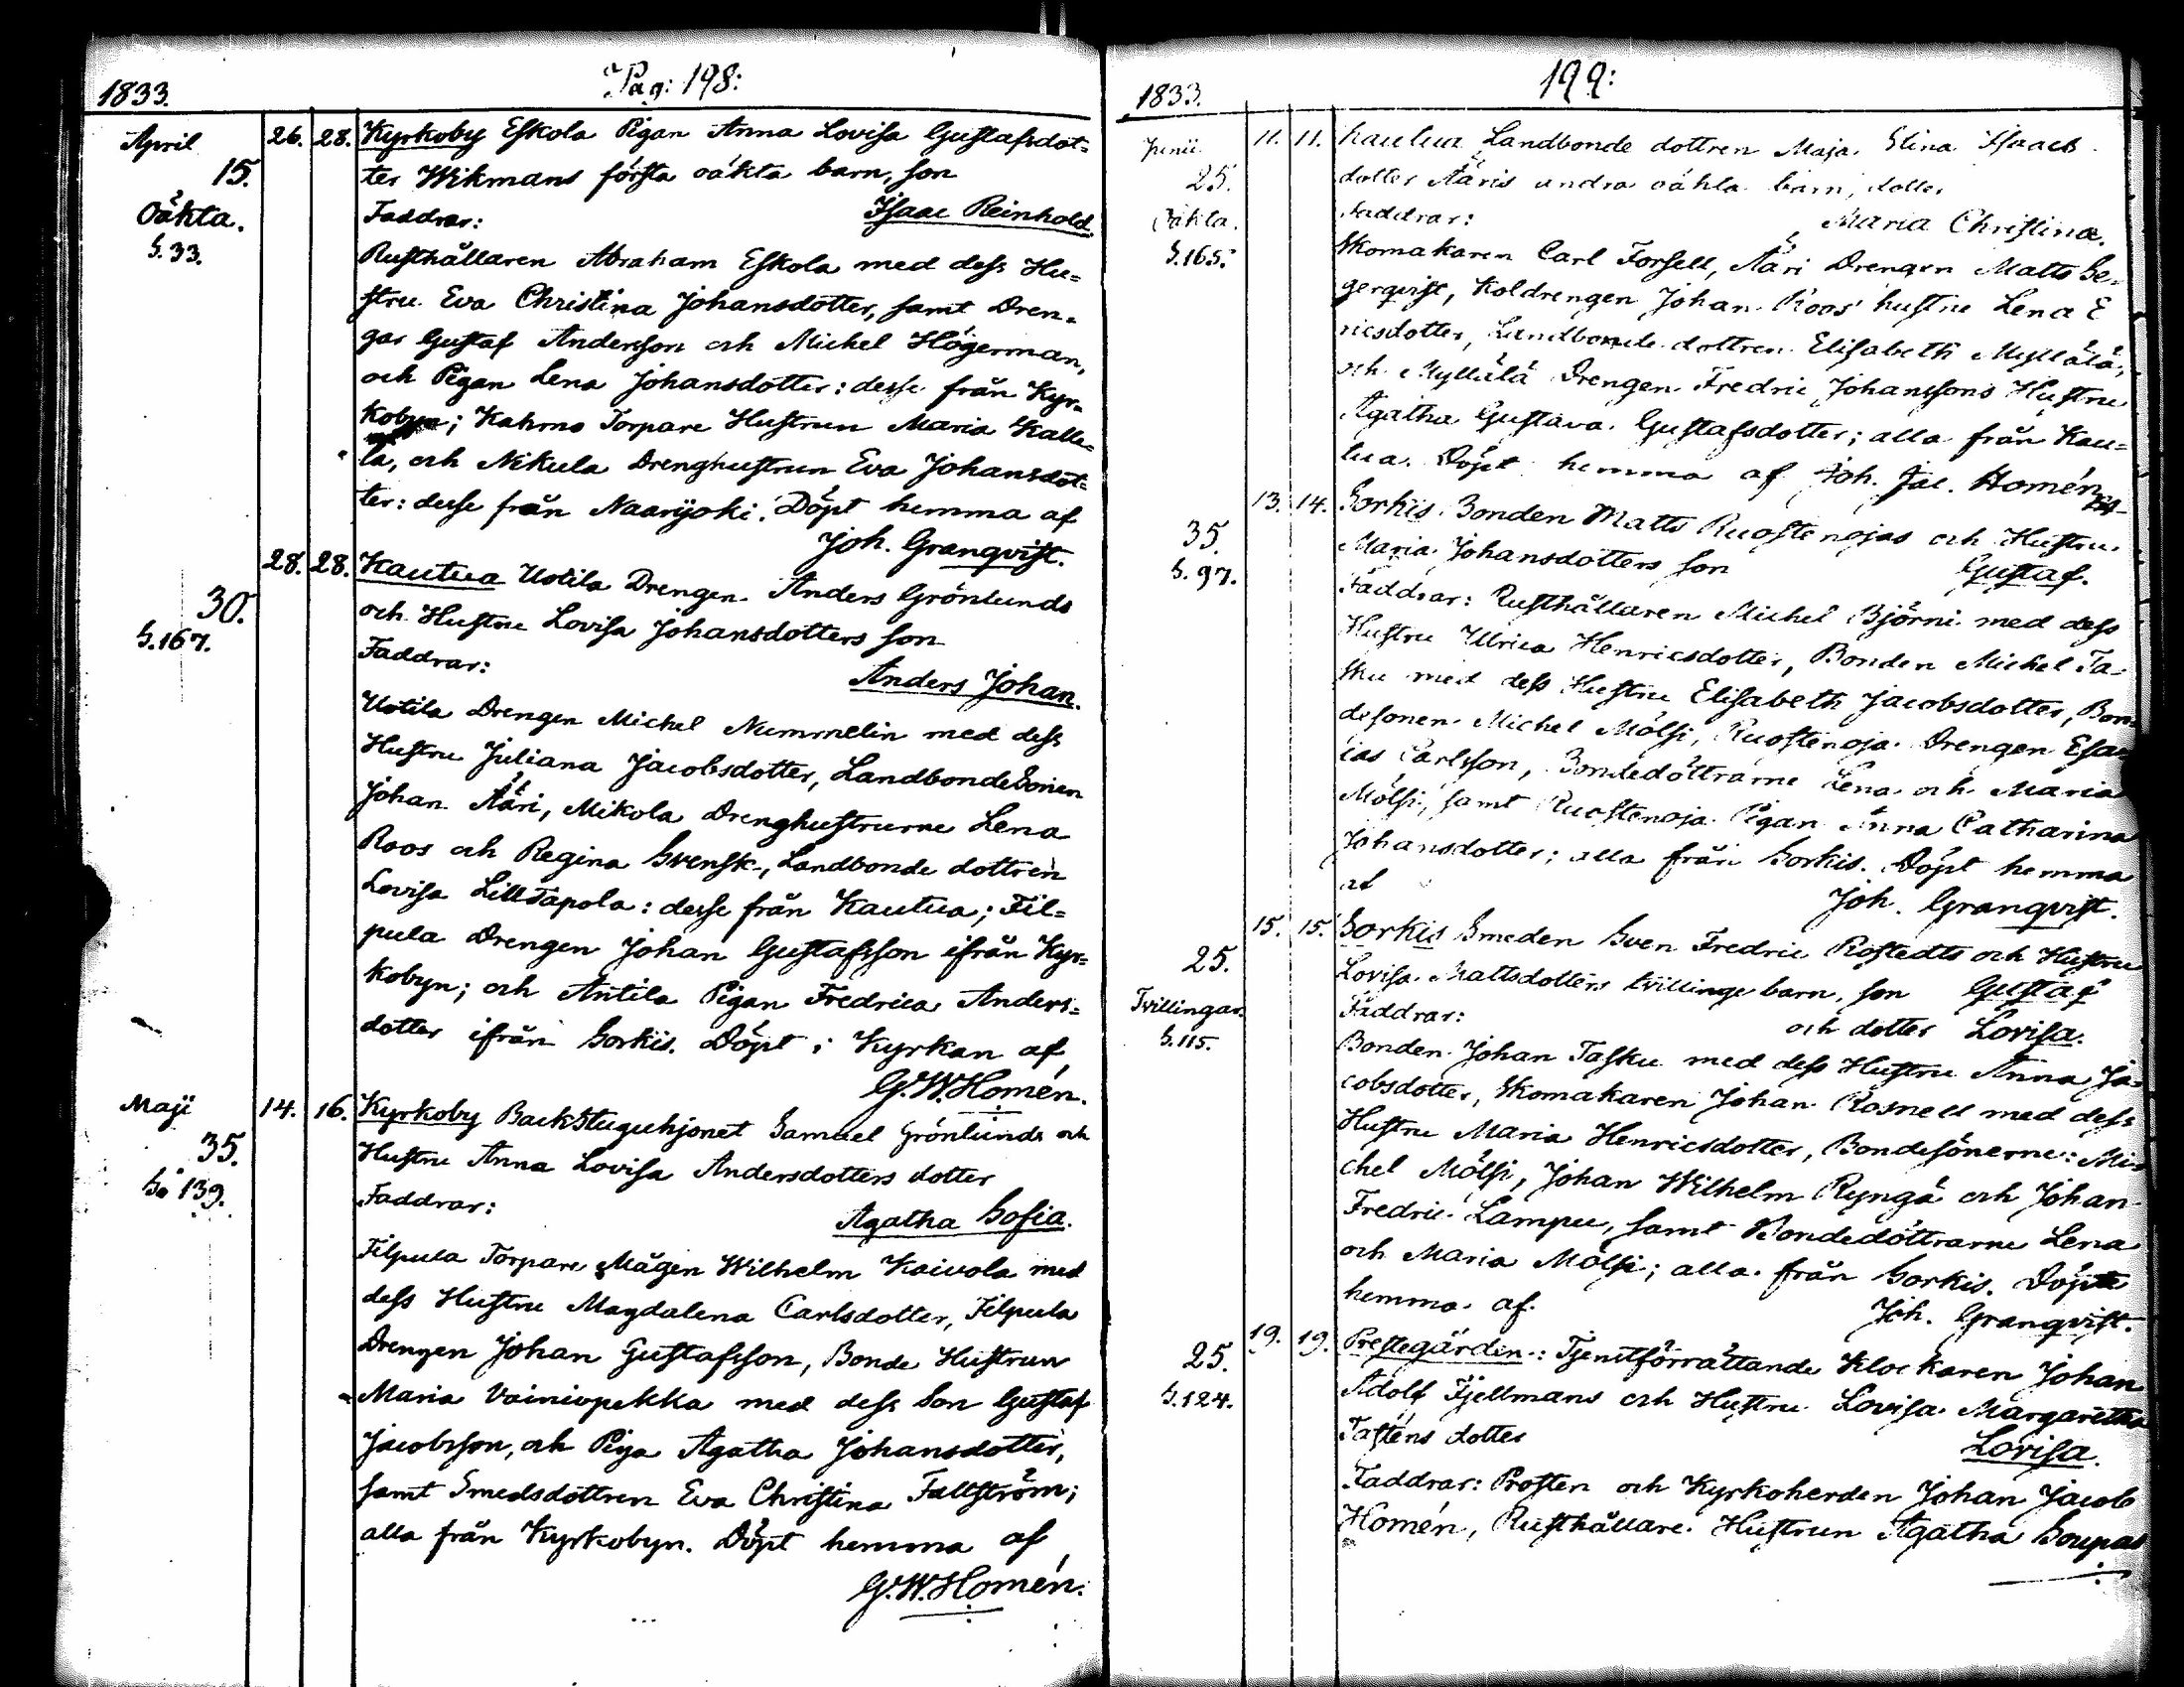 1833.
Pag: 198:
April
15.
Oäkta.
S. 33.
26. 28. Kyrkoby Eskola Pigan Anna Lovisa Gustafsdot=
ter Wikmans första oäkta barn, son
Faddrar: Isaac Reinhold.
Rusthållaren Abraham Eskola med dess Hu=
stru Eva Christina Johansdotter, samt Dren=
gar Gustaf Andersson och Michel Högerman,
och Pigan Lena Johansdotter: desse från Kyr=
kobyn; Kahmo Torpare Hustrun Maria Kalle=
la, och Nikula Drenghustrun Eva Johansdot=
ter: desse från Naarijoki. Döpt hemma af
Joh. Granqvist.
30.
S. 167.
28. 28. Kautua Uotila Drengen Anders Grönlunds
och Hustru Lovisa Johansdotters son
Faddrar:
Anders Johan.
Uotila Drengen Michel Nummelin med dess
Hustru Juliana Jacobsdotter, LandbondeSonen
Johan Ääri, Mikola Drenghustrurne Lena
Roos och Regina Svensk, Landbonde dottren
Lovisa LillTapola: desse från Kautua; Fil=
pula Drengen Johan Gustafsson ifrån Kyr=
kobyn; och Antila Pigan Fredrica Anders=
dotter ifrån Sorkis. Döpt i Kyrkan af
G. W. Homén.
Maji
35.
S. 139.
14. 16. Kyrkoby Backstuguhjonet Samuel Grönlunds och
Hustru Anna Lovisa Andersdotters dotter
Faddrar:
Agatha Sofia.
Filpula Torpare Mågen Wilhelm Kaivola med
dess Hustru Magdalena Carlsdotter, Filpula
Drengen Johan Gustafsson, Bonde Hustrun
Maria Vainionpekka med dess Son Gustaf
Jacobsson, och Piga Agatha Johansdotter,
samt Smedsdottren Eva Christina Fallström;
alla från Kyrkobyn. Döpt hemma af
G. W. Homén.
1833.
199:
Junii
25.
Oäkta.
S. 165.
11. 11. Kautua Landbonde dottren Maja Elina Isaacs
dotter Ääris andra oäkta barn, dotter
Faddrar: Maria Christina.
Skomakaren Carl Forsell, Ääri Drengen Matts Se-
gerqvist, Koldrengen Johan Roos' hustru Lena E
ricsdotter, Landbonde dottren Elisabeth Myllälä,
och Myllälä Drengen Fredric Johanssons Hustru
Agatha Gustava Gustafsdotter; alla från Kau=
tua. Döpt hemma af Joh. Jac. Homén
35.
S. 97.
13. 14. Sorkis Bonden Matts Ruostenojas och Hustru
Maria Johansdotters son Gustaf.
Faddrar: Rusthållaren Michel Björni med dess
Hustru Ulrica Henricsdotter, Bonden Michel Ta-
sku med dess Hustru Elisabeth Jacobsdotter, Bon=
desonen Michel Mölsi, Ruostenoja Drengen Esa=
ias Carlsson, Bondedöttrarne Lena och Maria
Mölsi, samt Ruostenoja Pigan Anna Catharina
Johansdotter; alla från Sorkis. Döpt hemma
af
Joh. Granqvist.
25.
Tvillingar.
S. 115.
15. 15. Sorkis Smeden Sven Fredric Rostedts och Hustru
Lovisa Mattsdotters tvillinge barn, son Gustaf
Faddrar: och dotter Lovisa.
Bonden Johan Tasku med dess Hustru Anna Ja=
cobsdotter, Skomakaren Johan Rosnell med dess
Hustru Maria Henricsdotter, Bondesönerne: Mi=
chel Mölsi, Johan Wilhelm Ryngä och Johan
Fredric Lampu, samt Bondedöttrarne Lena
och Maria Mölsi; alla från Sorkis. Döpte
hemma af Joh. Granqvist.
25.
S. 124.
19. 19. Prestegården: Tjenstförrättande Klockaren Johan
Adolf Fjellmans och Hustru Lovisa Margaretha
Tasténs dotter Lovisa.
Faddrar: Prosten och Kyrkoherden Johan Jacob
Homén, Rusthållare Hustrun Agatha Soupas